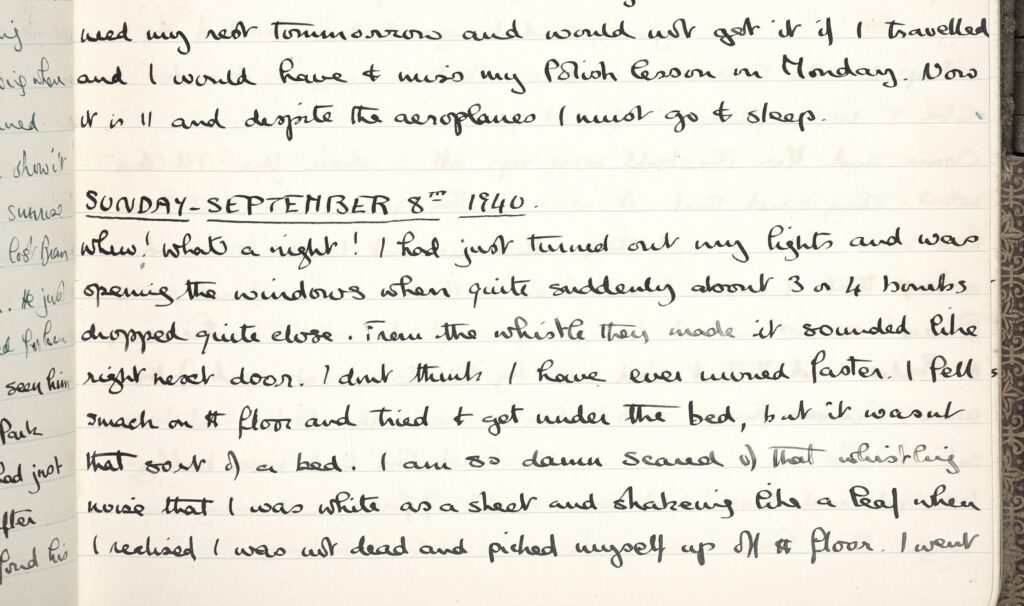 need my rest tommorrow and would not get it if I travelled
and I would have t miss my Polish lesson on Monday. Now
it is 11 and despite the aeroplanes I must go t sleep.
SUNDAY-SEPTEMBER 8TH 1940.
whew! what a night! I had just turned out my lights and was
opening the windows when quite suddenly about 3 or 4 bombs
dropped quite close. From the whistle they made it sounded like
right next door. I dont think I have ever moved faster. I fell
smack on the floor and tried t get under the bed, but it wasnt
that sort of a bed. I am so damn scared of that whistling
noise that I was white as a sheet and shakeing like a leaf when
I realised I was not dead and picked myself up off the floor. I went
when
show it
sunrise
He just
seen him
Park
had just